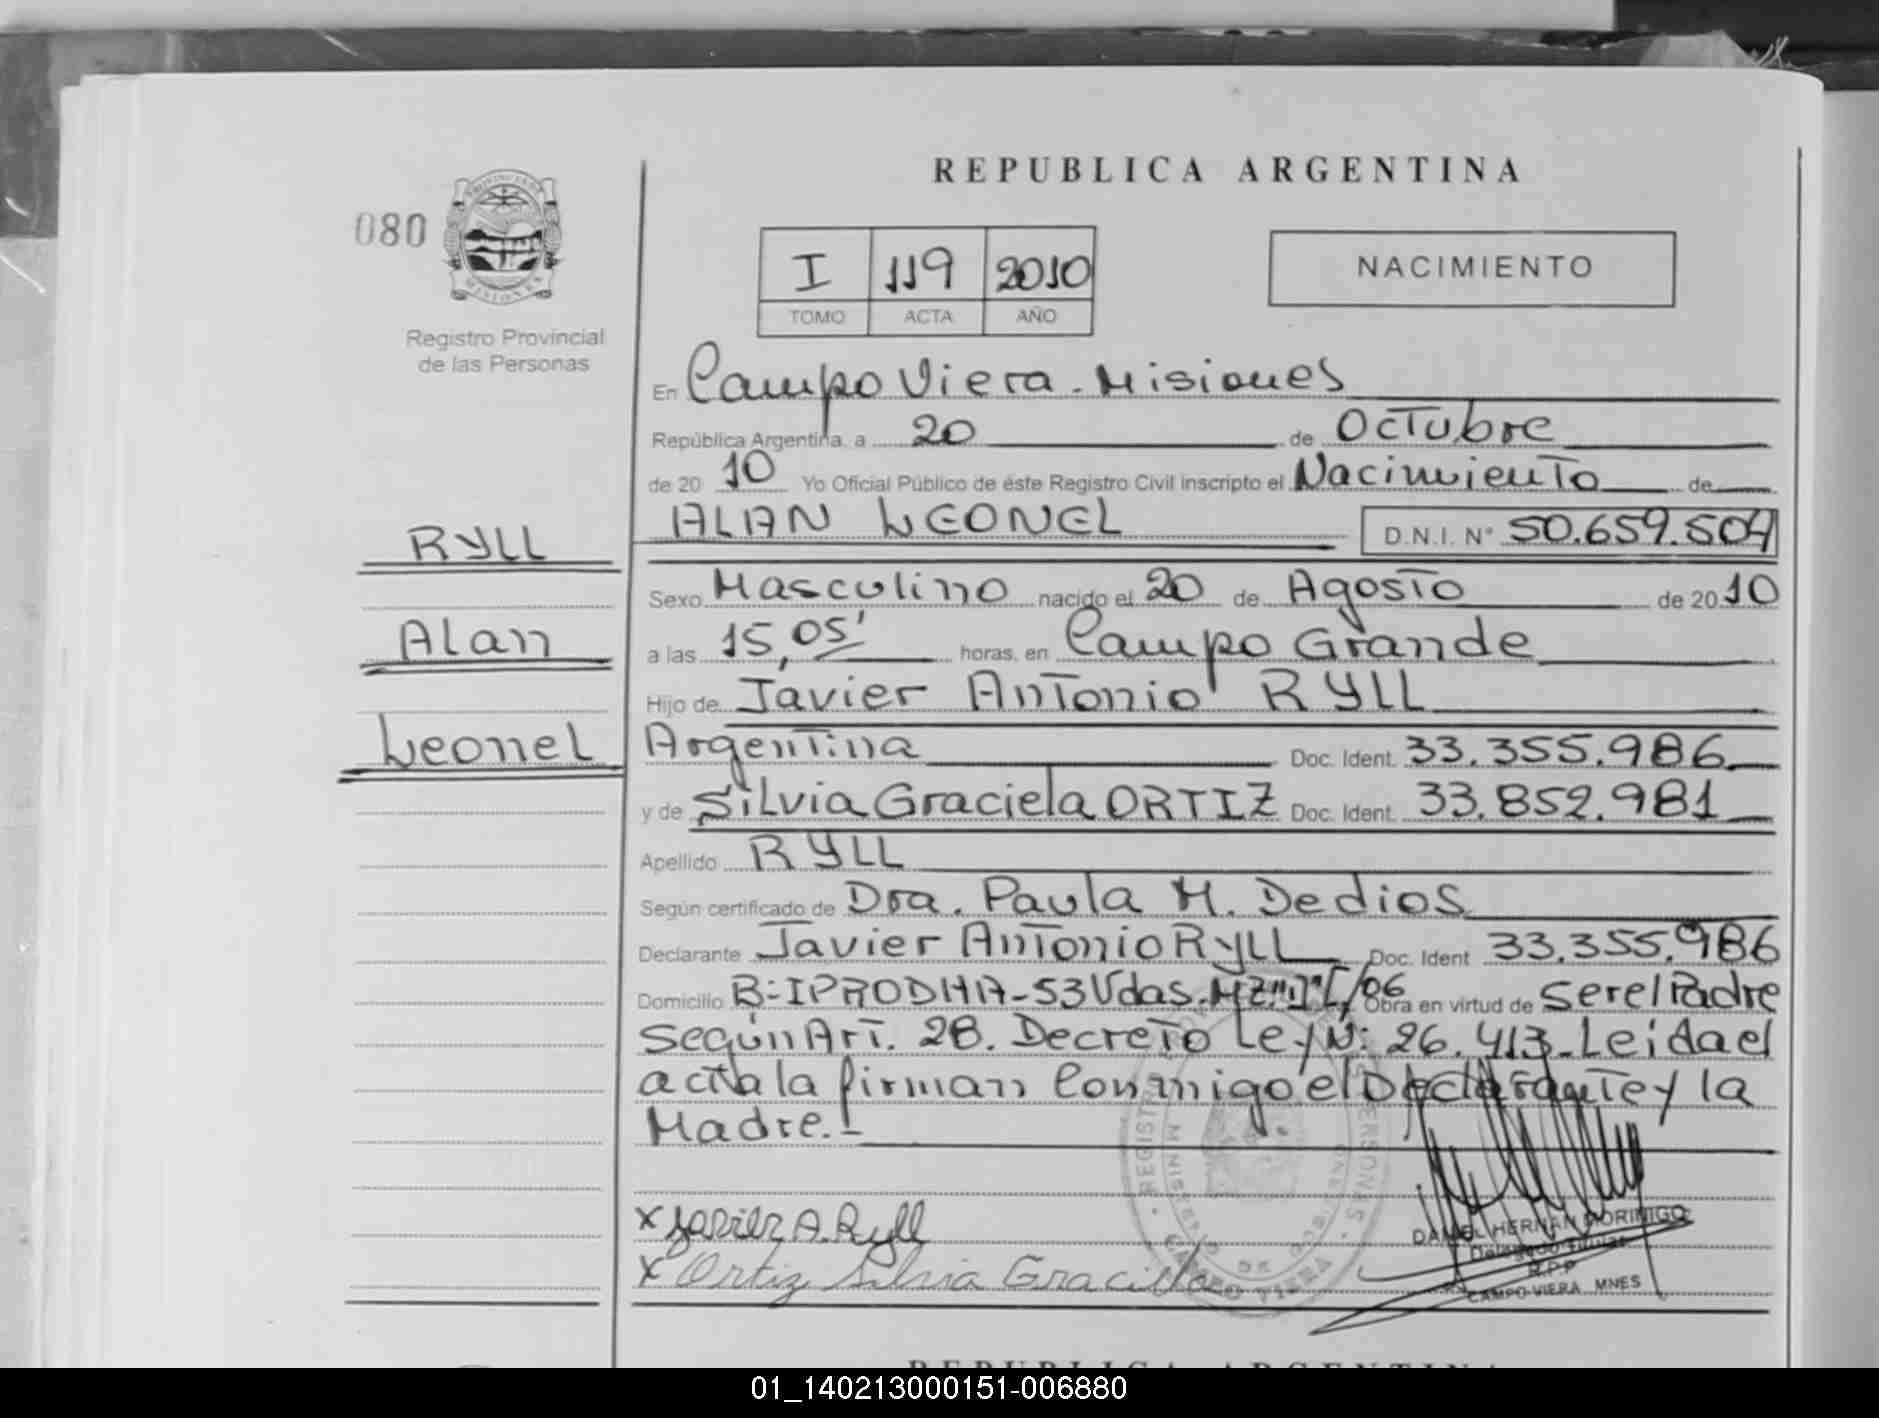 REPUBLICA ARGENTINA
080
PROVINCIA DE
MISIONES
Registro Provincial
de las Personas
I 119 2010
TOMO ACTA AÑO
NACIMIENTO
En Campo Viera - Misiones
República Argentina, a 20 de Octubre
de 20 10 Yo Oficial Público de éste Registro Civil inscripto el Nacimiento de
ALAN LEONEL D.N.I. N° 50.659.504
RYLL
Alan
Leonel
Sexo Masculino nacido el 20 de Agosto de 2010
a las 15,05' horas, en Campo Grande
Hijo de Javier Antonio RYLL
Argentina Doc. Ident. 33.355.986
y de Silvia Graciela ORTIZ Doc. Ident. 33.852.981
Apellido RYLL
Según certificado de Dra. Paula M. Dedios
Declarante Javier Antonio RyLL Doc. Ident 33.355.986
Domicilio B: IPRODHA - 53 Vdas. MZ. /06 Obra en virtud de Ser el Padre
Según Art. 28. Decreto Ley N: 26.413. Leida el
acta la firman Conmigo el Declarante y la
Madre.-
x Javier A. Ryll
x Ortiz Silvia Graciela
DANIEL HERNAN MORINIGO
Delegado Titular
R.P.P
CAMPO VIERA MNES
REPUBLICA ARGENTINA
01_140213000151-006880